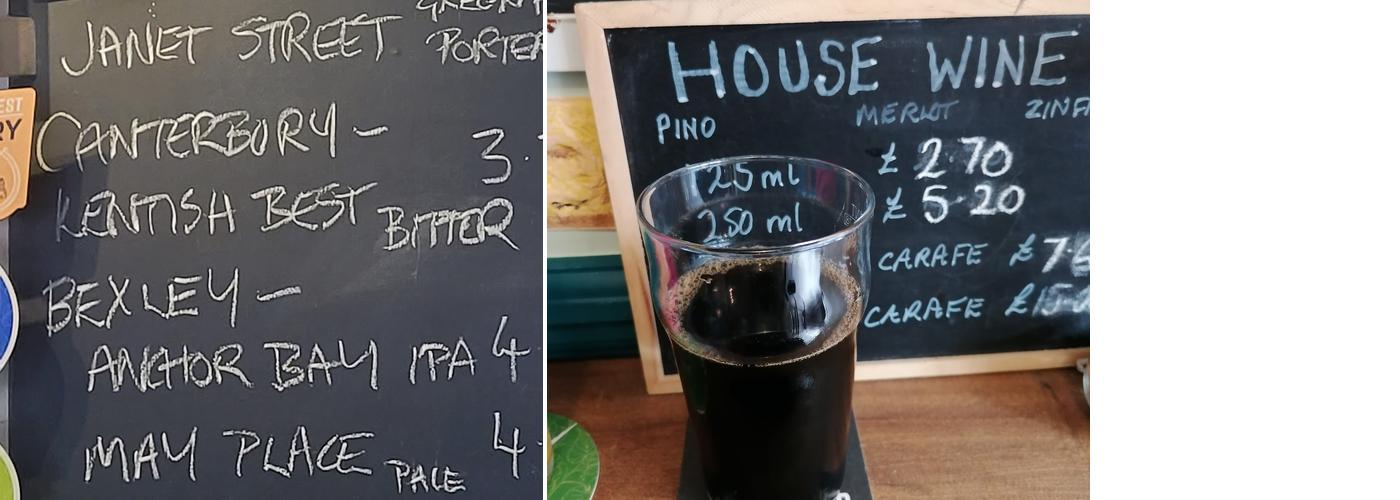 JANET STREET PORTER
CANTERBURY - 3.
KENTISH BEST BITTER
BEXLEY -
ANCHOR BAY IPA 4
MAY PLACE PALE 4.
EST
RY
HOUSE WINE
PINO MERLOT ZINF
125ml £ 2.70
250 ml £ 5.20
CARAFE £7.
CARAFE £15.